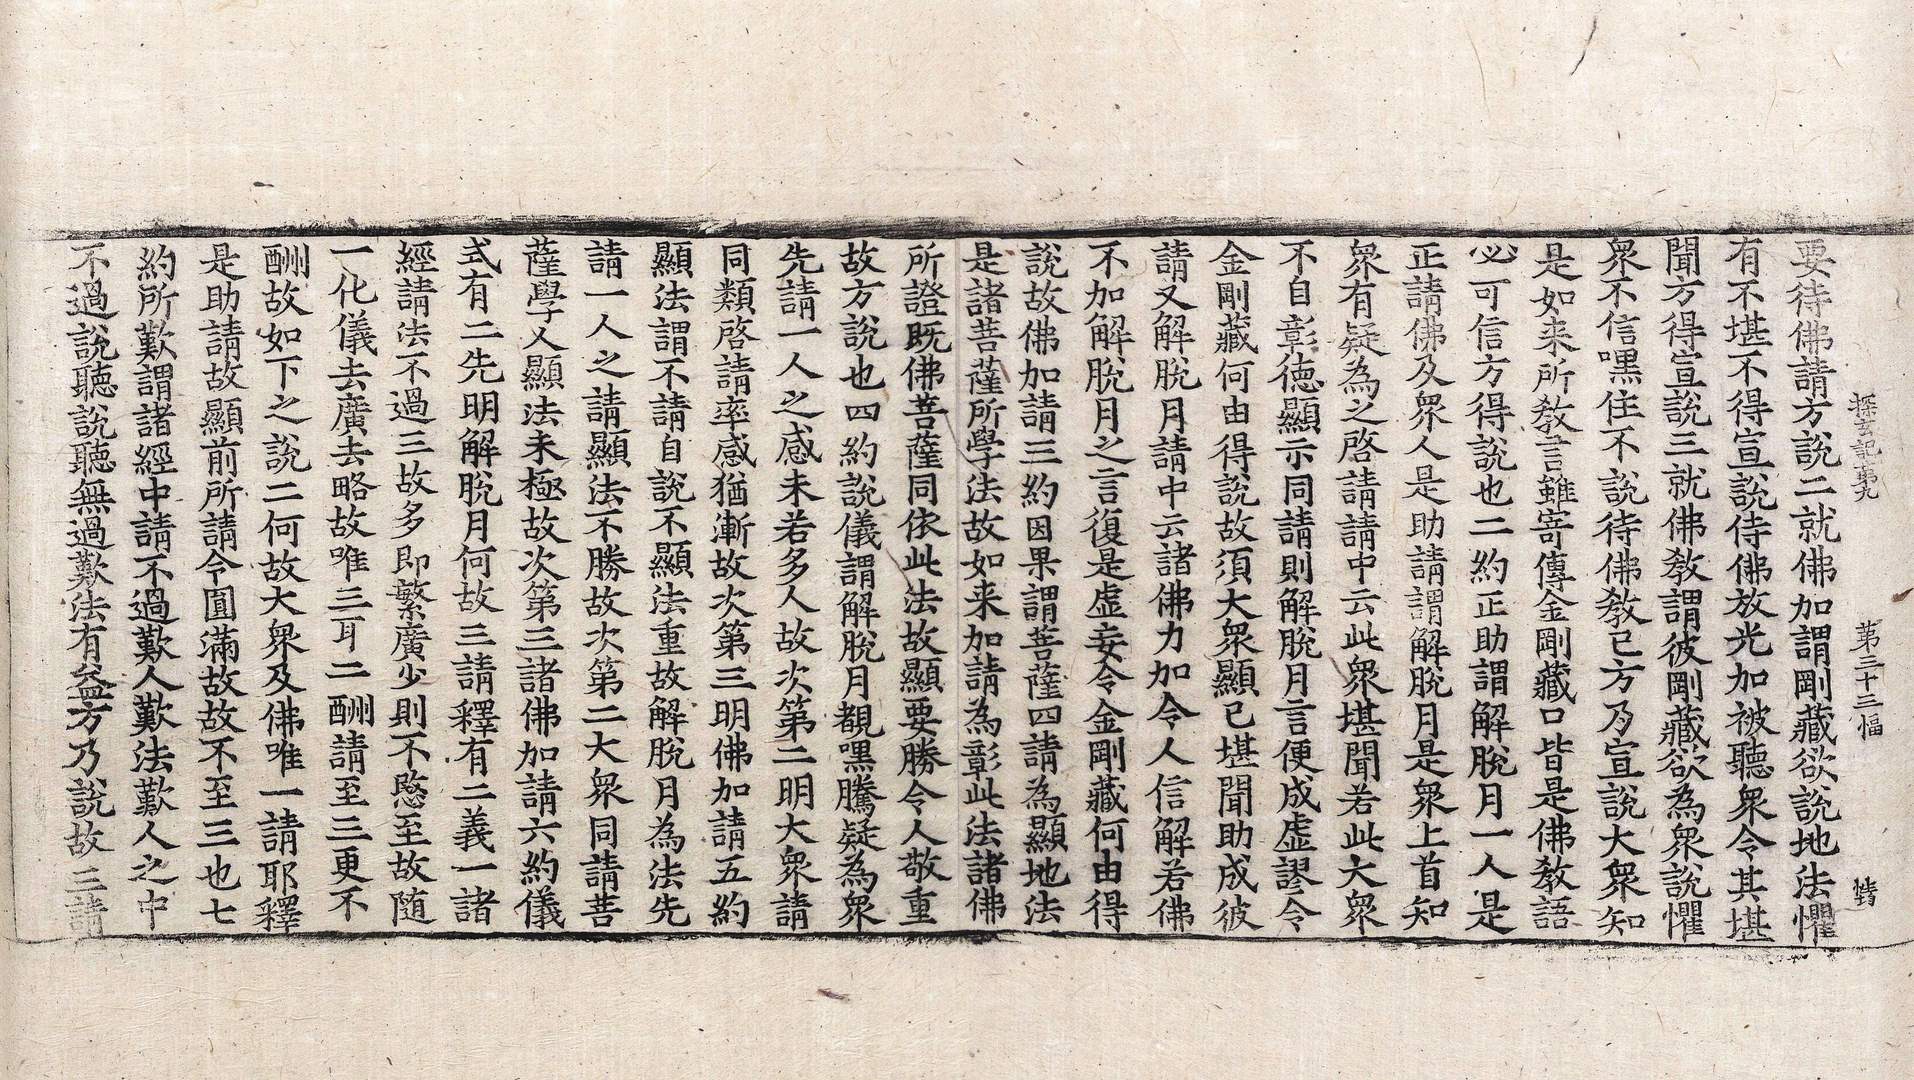 探玄記第九　第三十三幅
要待佛請方說二就佛加謂剛藏欲說地法懼
有不堪不得宣說待佛放光加被聽衆令其堪
聞方得宣說三就佛教謂彼剛藏欲為衆說懼
衆不信嘿住不說待佛教已方乃宣說大衆知
是如来所教言雖寄傳金剛藏口皆是佛教語
必可信方得說也二約正助謂解脫月一人是
正請佛及衆人是助請謂解脫月是衆上首知
衆有疑為之啓請請中云此衆堪聞若此大衆
不自彰德顯示同請則解脫月言便成虛謬令
金剛藏何由得說故須大衆顯已堪聞助成彼
請又解脫月請中云諸佛力加令人信解若佛
不加解脫月之言復是虛妄令金剛藏何由得
說故佛加請三約因果謂菩薩四請為顯地法
是諸菩薩所學法故如来加請為彰此法諸佛
所證既佛菩薩同依此法故顯要勝令人敬重
故方說也四約說儀謂解脫月覩嘿騰疑為衆
先請一人之感未若多人故次第二明大衆請
同類啓請率感猶漸故次第三明佛加請五約
顯法謂不請自說不顯法重故解脫月為法先
請一人之請顯法不勝故次第二大衆同請菩
薩學又顯法未極故次第三諸佛加請六約儀
式有二先明解脫月何故三請釋有二義一諸
經請法不過三故多即繁廣少則不慇至故随
一化儀去廣去略故唯三耳二酬請至三更不
酬故如下之說二何故大衆及佛唯一請耶釋
是助請故顯前所請令圓滿故故不至三也七
約所歎謂諸經中請不過歎人歎法歎人之中
不過說聽說聽無過歎法有益方乃說故三請